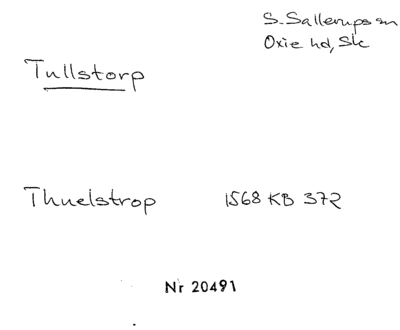 S. Sallerups sn
Oxie hd, Sk
Tullstorp
Thuelstrop 1568 KB 372
Nr 20491